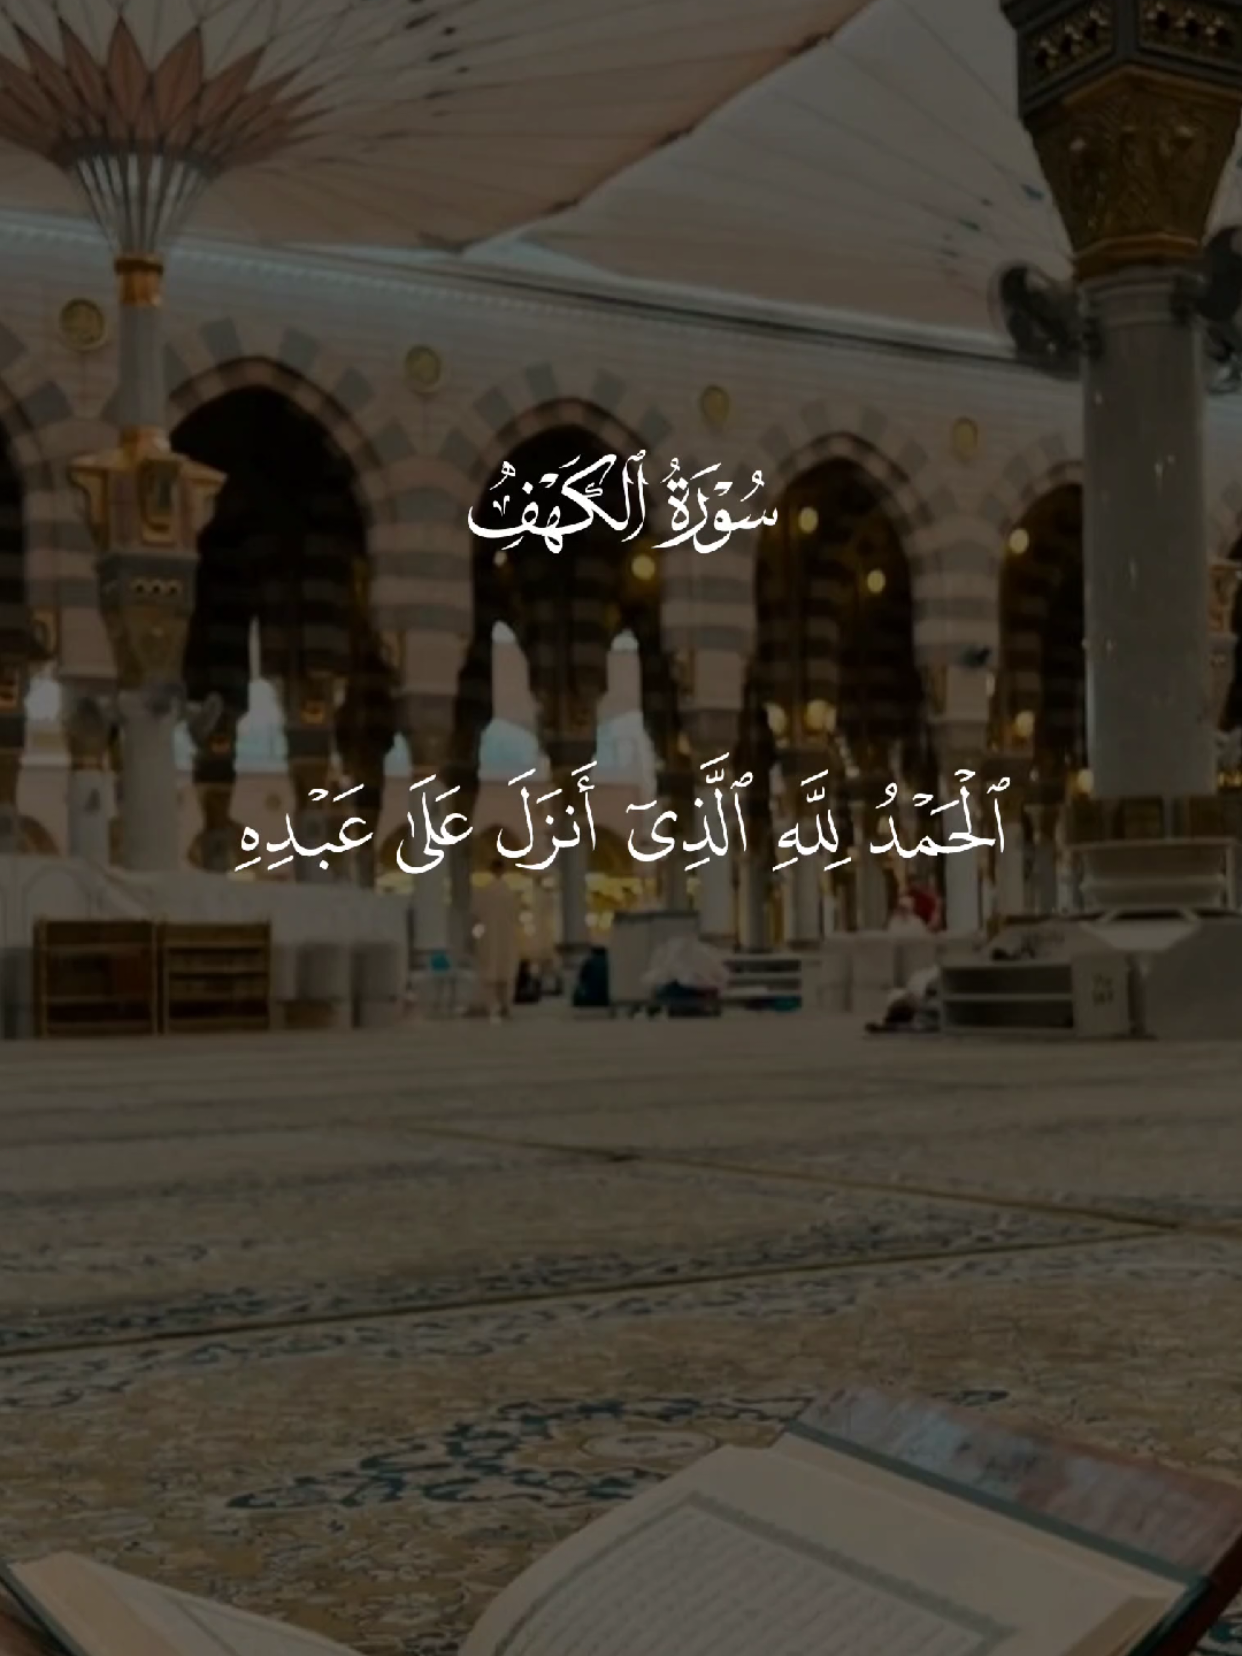 سُورَةُ ٱلْكَهْفِ
ٱلْحَمْدُ لِلَّهِ ٱلَّذِىٓ أَنزَلَ عَلَىٰ عَبْدِهِ